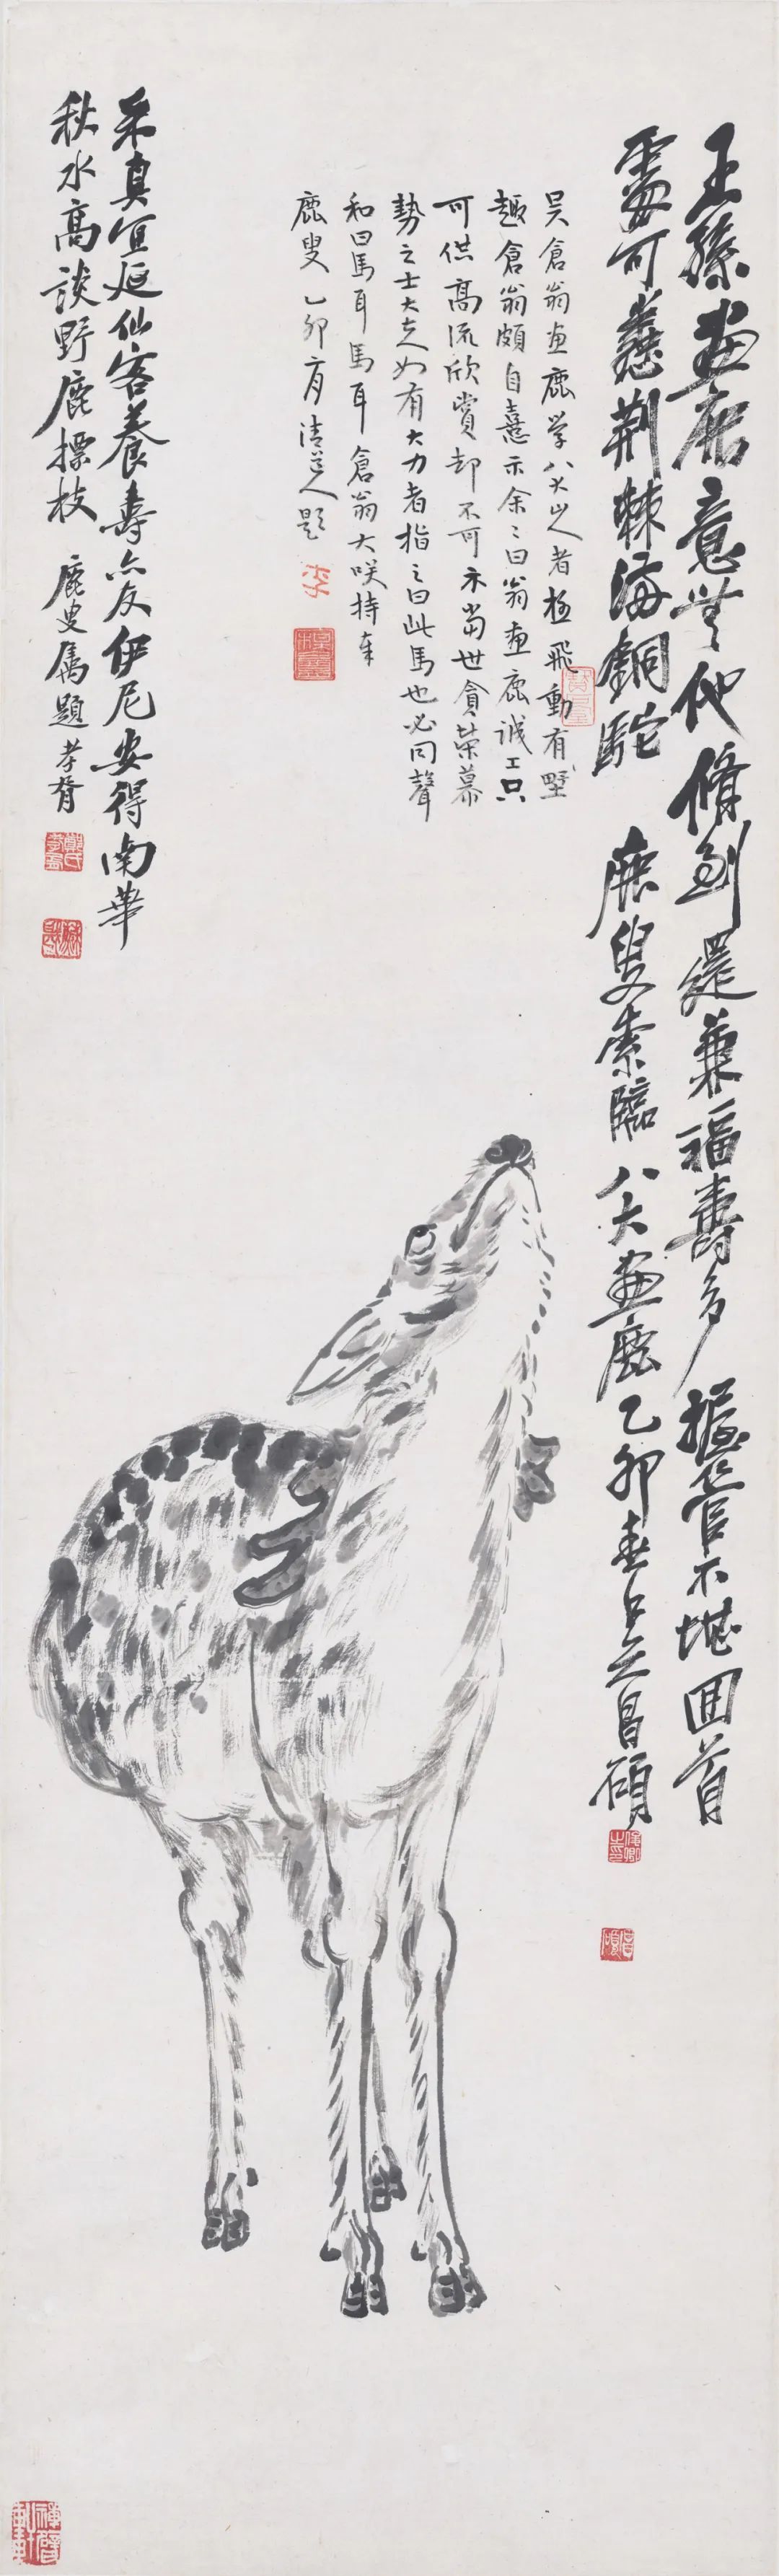 王孫畫鹿意無他脩到還兼福壽多握管不堪囬首
處可荊棘銅駝 鹿叟索臨八大畫鹿乙卯春吳昌碩
俊卿之印
吳倉翁畫鹿學八大山人者極飛動有墅
趣倉翁頗自憙示余々曰翁畫鹿誠工只
可供高流欣賞却不可示當世貪榮慕
勢之士大夫如有大力者指之曰此馬也必同聲
和曰馬耳馬耳倉翁大咲持奉
鹿叟 乙卯二月清道人題
李
采真宜延仙客養壽亦友伊尼安得南華
秋水高談野鹿標枝 鹿叟屬題 孝胥